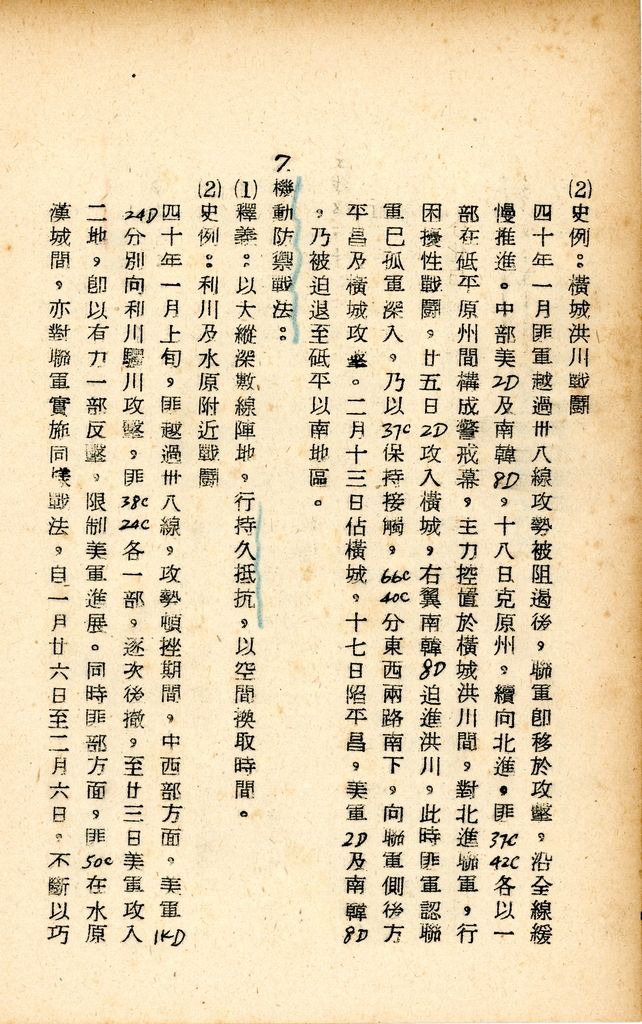 (2)史例：橫城洪川戰鬪
四十年一月匪軍越過卅八線攻勢被阻遏後，聯軍卽移於攻擊，沿全線緩
慢推進。中部美2D及南韓8D，十八日克原州，續向北進，匪37C 42C各以一
部在砥平原州間構成警戒幕，主力控置於橫城洪川間，對北進聯軍，行
困擾性戰鬪，廿五日2D攻入橫城，右翼南韓8D迫進洪川，此時匪軍認聯
軍已孤軍深入，乃以37C保持接觸，66C 40C分東西兩路南下，向聯軍側後方
平昌及橫城攻擊。二月十三日佔橫城，十七日陷平昌，美軍2D及南韓8D
，乃被迫退至砥平以南地區。
7.機動防禦戰法：
(1)釋義：以大縱深數線陣地，行持久抵抗，以空間換取時間。
(2)史例：利川及水原附近戰鬪
四十年一月上旬，匪越過卅八線，攻勢頓挫期間，中西部方面，美軍1KD
24D分別向利川驪川攻擊，匪38C 24C各一部，逐次後撤，至廿三日美軍攻入
二地，卽以有力一部反擊，限制美軍進展。同時匪部方面，匪50C在水原
漢城間，亦對聯軍實施同樣戰法，自一月廿六日至二月六日，不斷以巧